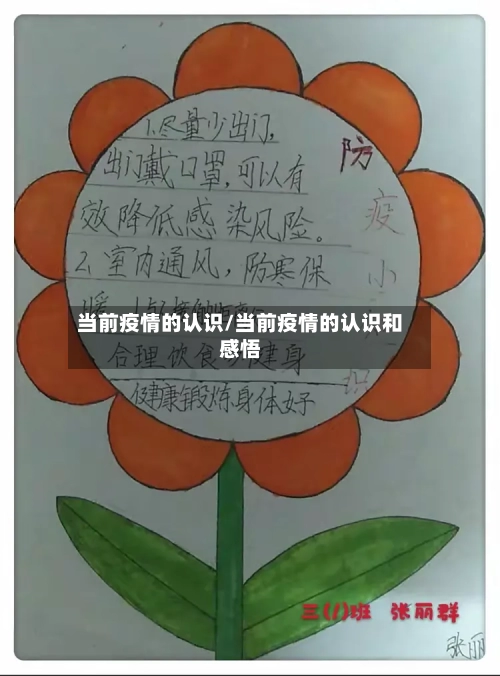 1.尽量少出门,
出门戴口罩,可以有
效降低感染风险。
2、室内通风，防寒保
暖
当前疫情的认识/当前疫情的认识和
感悟
合理饮食 健身
健康锻炼身体好
防
疫
小
识
三(1)班 张丽群
张丽